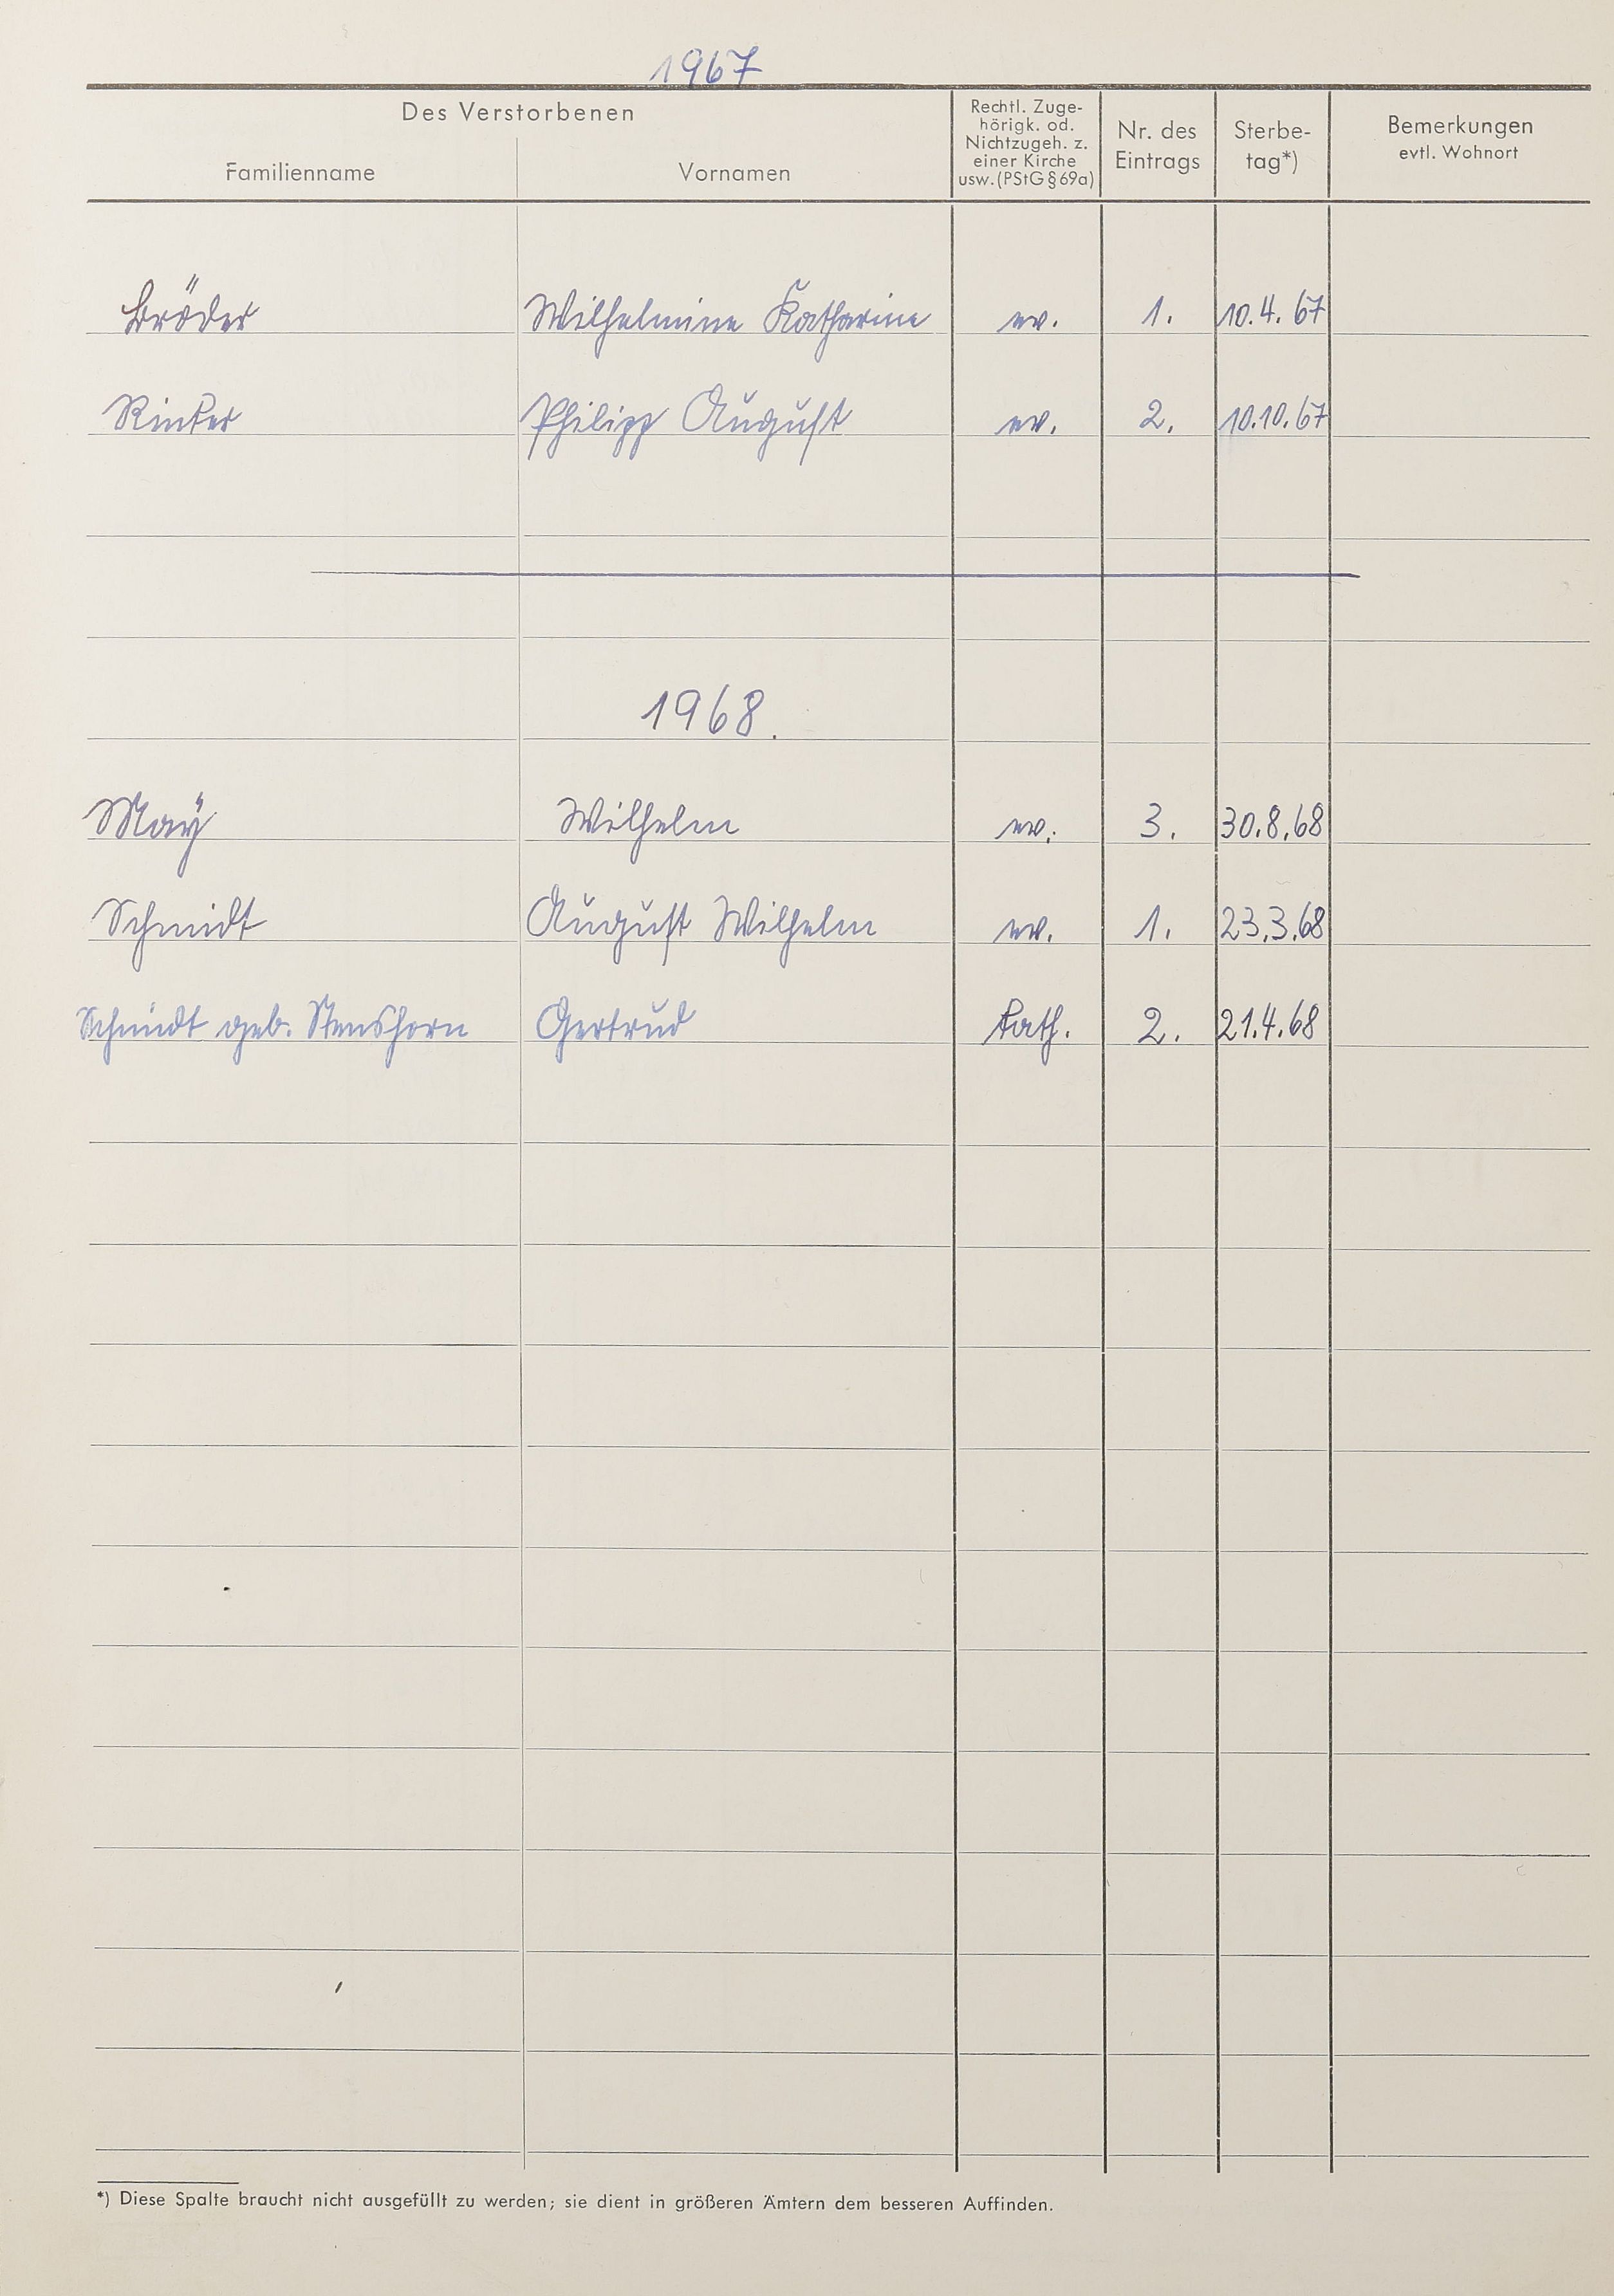 1967
Des Verstorbenen
Familienname
Vornamen
Rechtl. Zuge-
hörigk. od.
Nichtzugeh. z.
einer Kirche
usw. (PStG § 69a)
Nr. des
Eintrags
Sterbe-
tag*)
Bemerkungen
evtl. Wohnort
Bröder Wilhelmine Katharine ev. 1. 10.4.67
Rinker Philipp August ev. 2. 10.10.67
1968.
Maÿ Wilhelm ev. 3. 30.8.68
Schmidt August Wilhelm ev. 1. 23.3.68
Schmidt geb. Stenshorn Gertrud kath. 2. 21.4.68
*) Diese Spalte braucht nicht ausgefüllt zu werden; sie dient in größeren Ämtern dem besseren Auffinden.